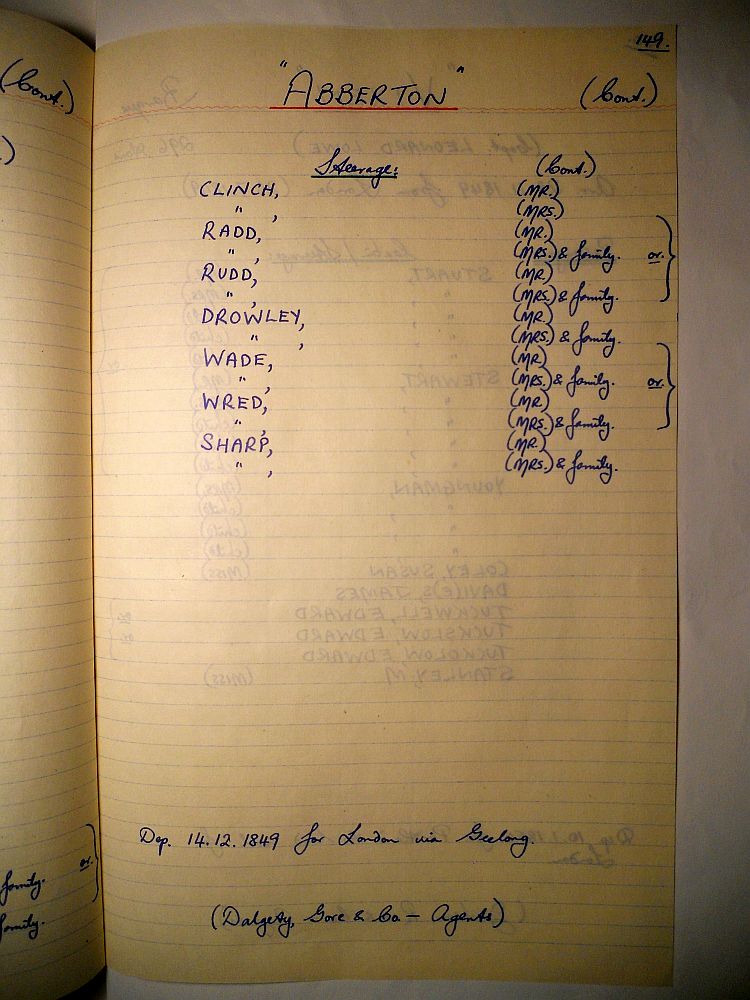 149.
"ABBERTON" (Cont.)
Steerage: (Cont.)
CLINCH, (MR.)
" , (MRS.)
RADD, (MR.)
" , (MRS.) & family. or.
RUDD, (MR.)
" , (MRS.) & family.
DROWLEY, (MR.)
" , (MRS.) & family.
WADE, (MR.)
" , (MRS.) & family. or.
WRED, (MR.)
" , (MRS.) & family.
SHARP, (MR.)
" , (MRS.) & family.
Dep. 14.12.1849 for London via Geelong.
(Dalgety, Gore & Co — Agents)
(Cont.)
)
or.
family.
family.